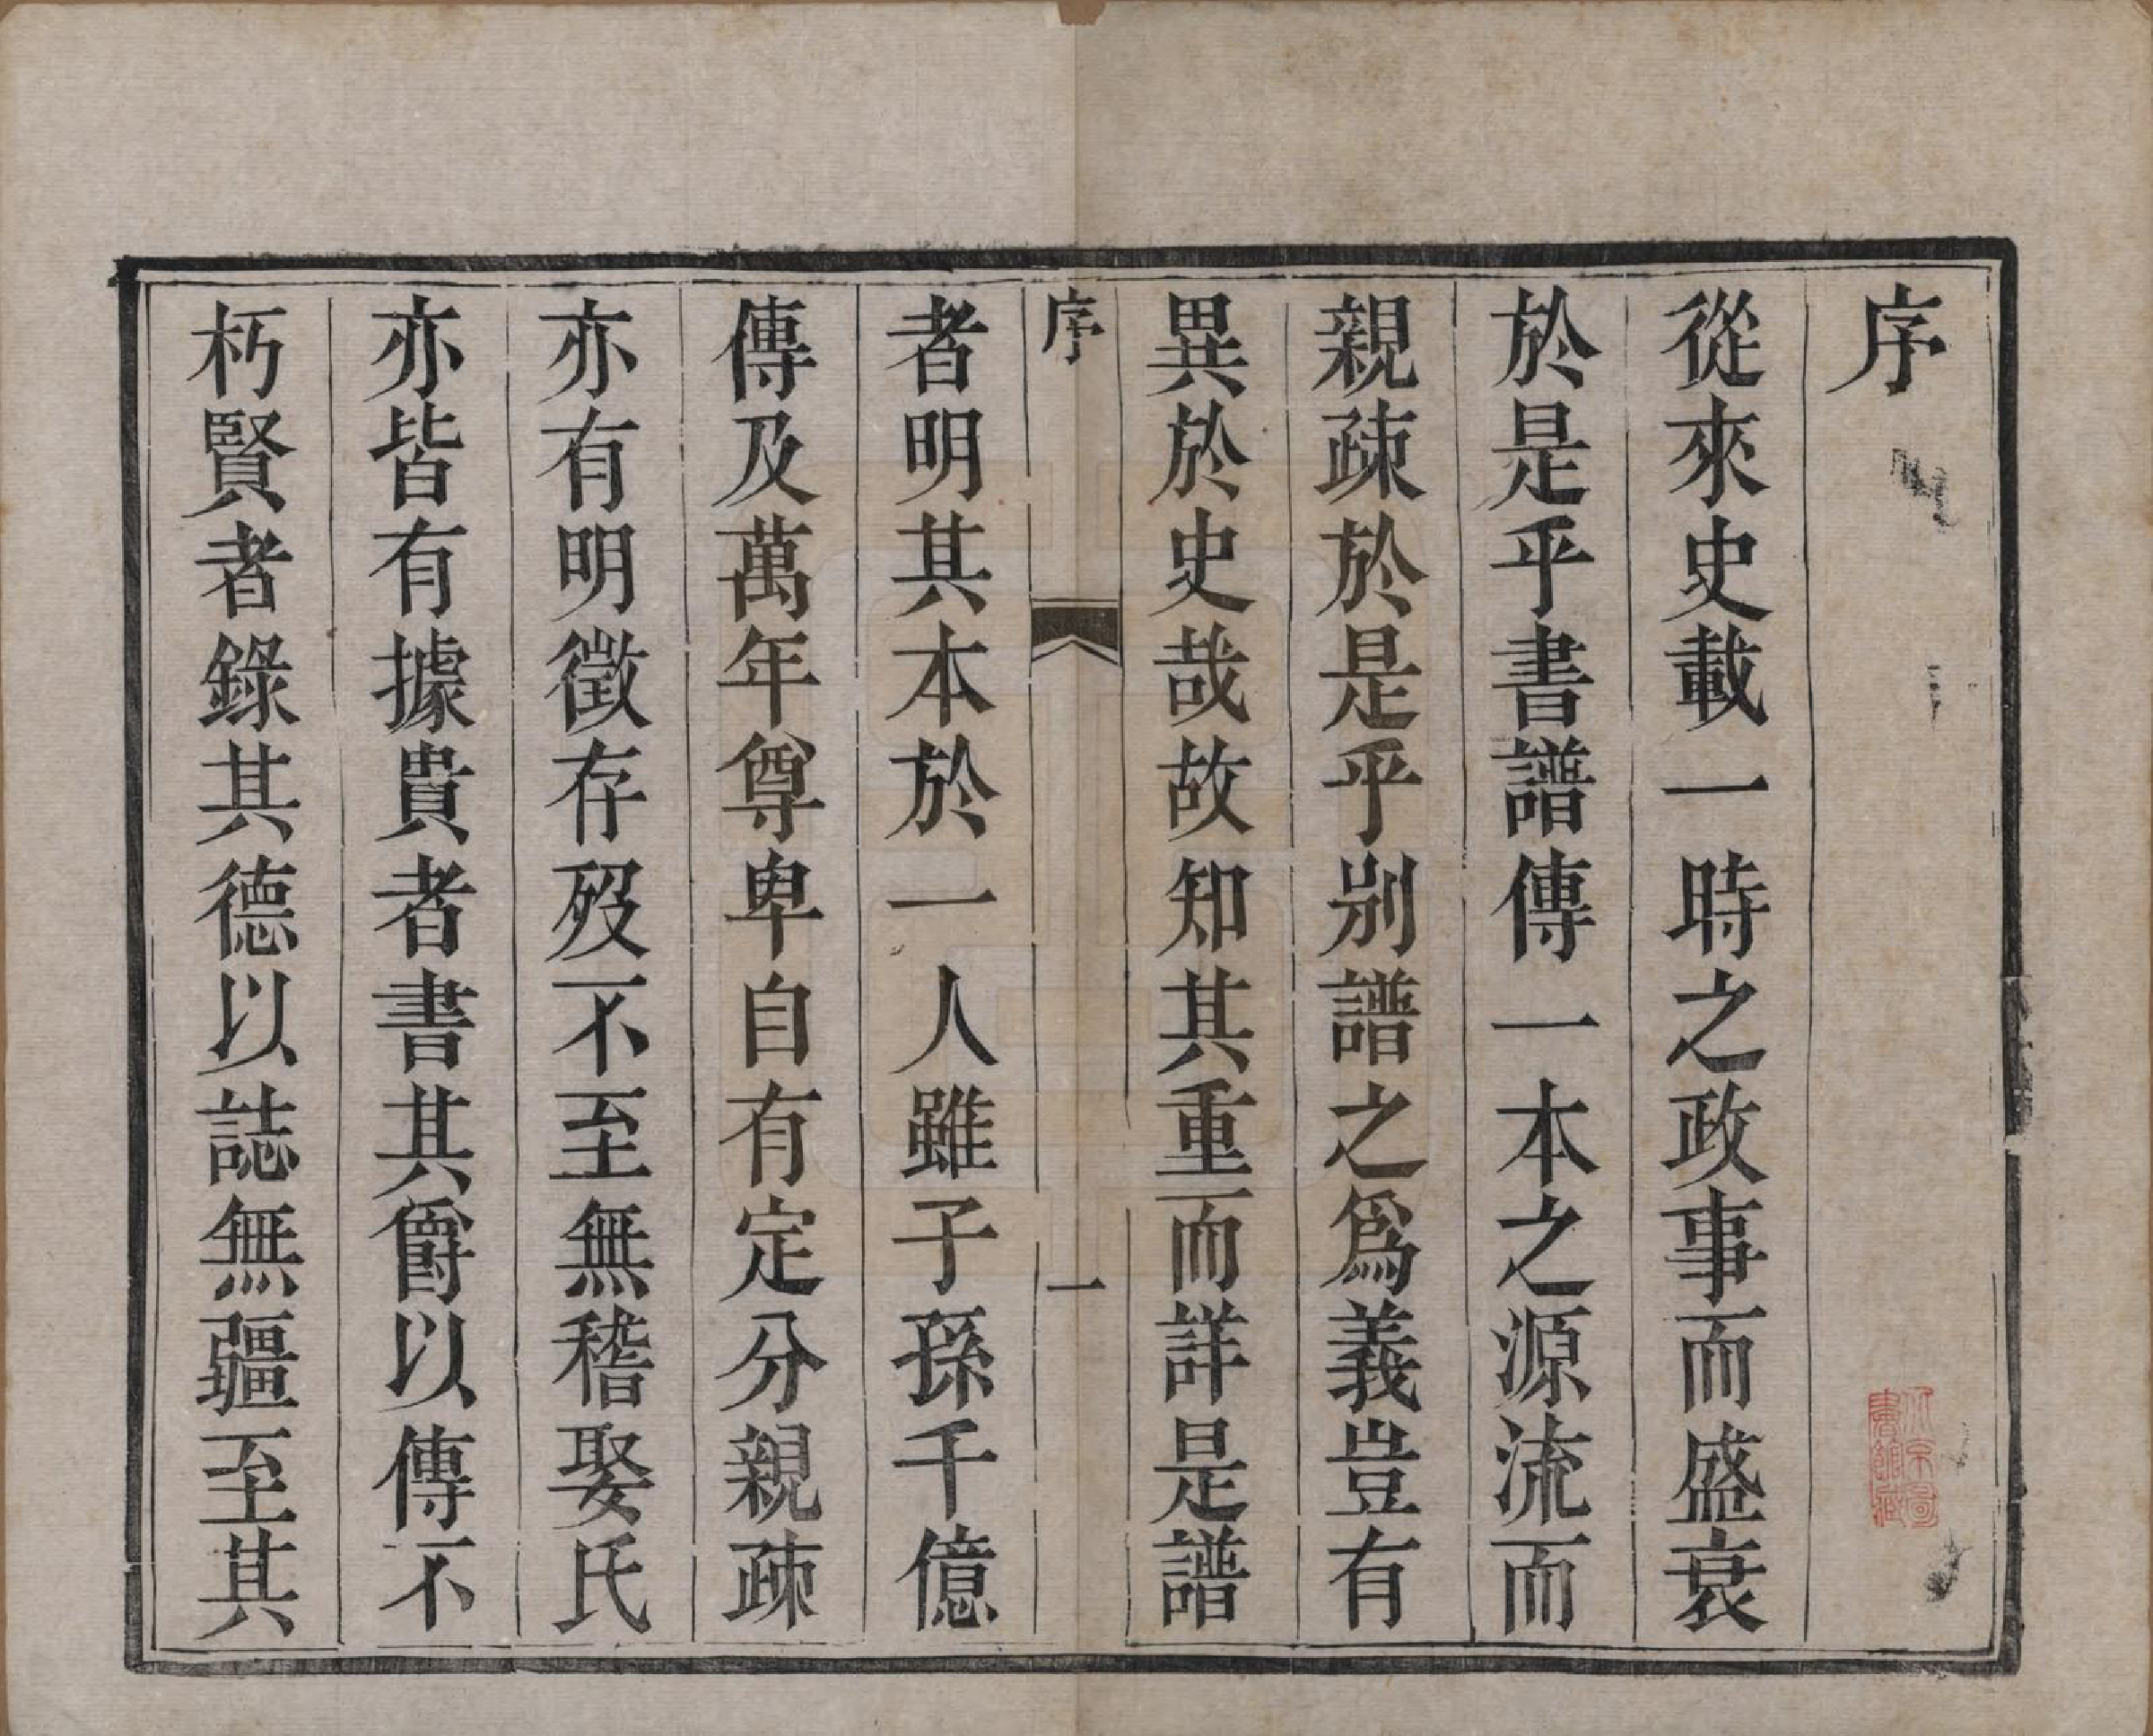 序
從來史載一時之政事而盛衰
於是乎書譜傳一本之源流而
親疎於是乎別譜之爲義豈有
異於史哉故知其重而詳是譜
序
一
者明其本於一人雖子孫千億
傳及萬年尊卑自有定分親疎
亦有明徵存歿不至無稽娶氏
亦皆有據貴者書其爵以傳不
朽賢者錄其德以誌無疆至其